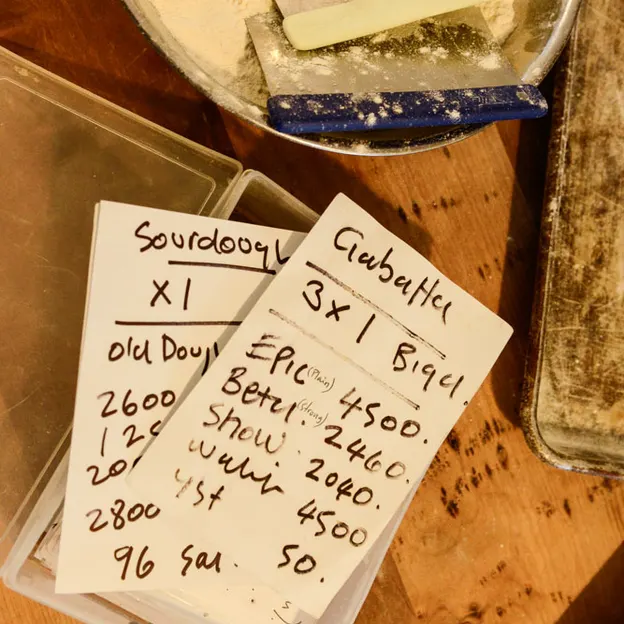 Sourdough
X1
Old Dough
2600
125
200
2800
96 Sal.
Ciabatta
3x1 Biga.
Epic (Plain) 4500.
Betu. (Strong) 2460.
Show. 2040.
Water 4500
yst 50.